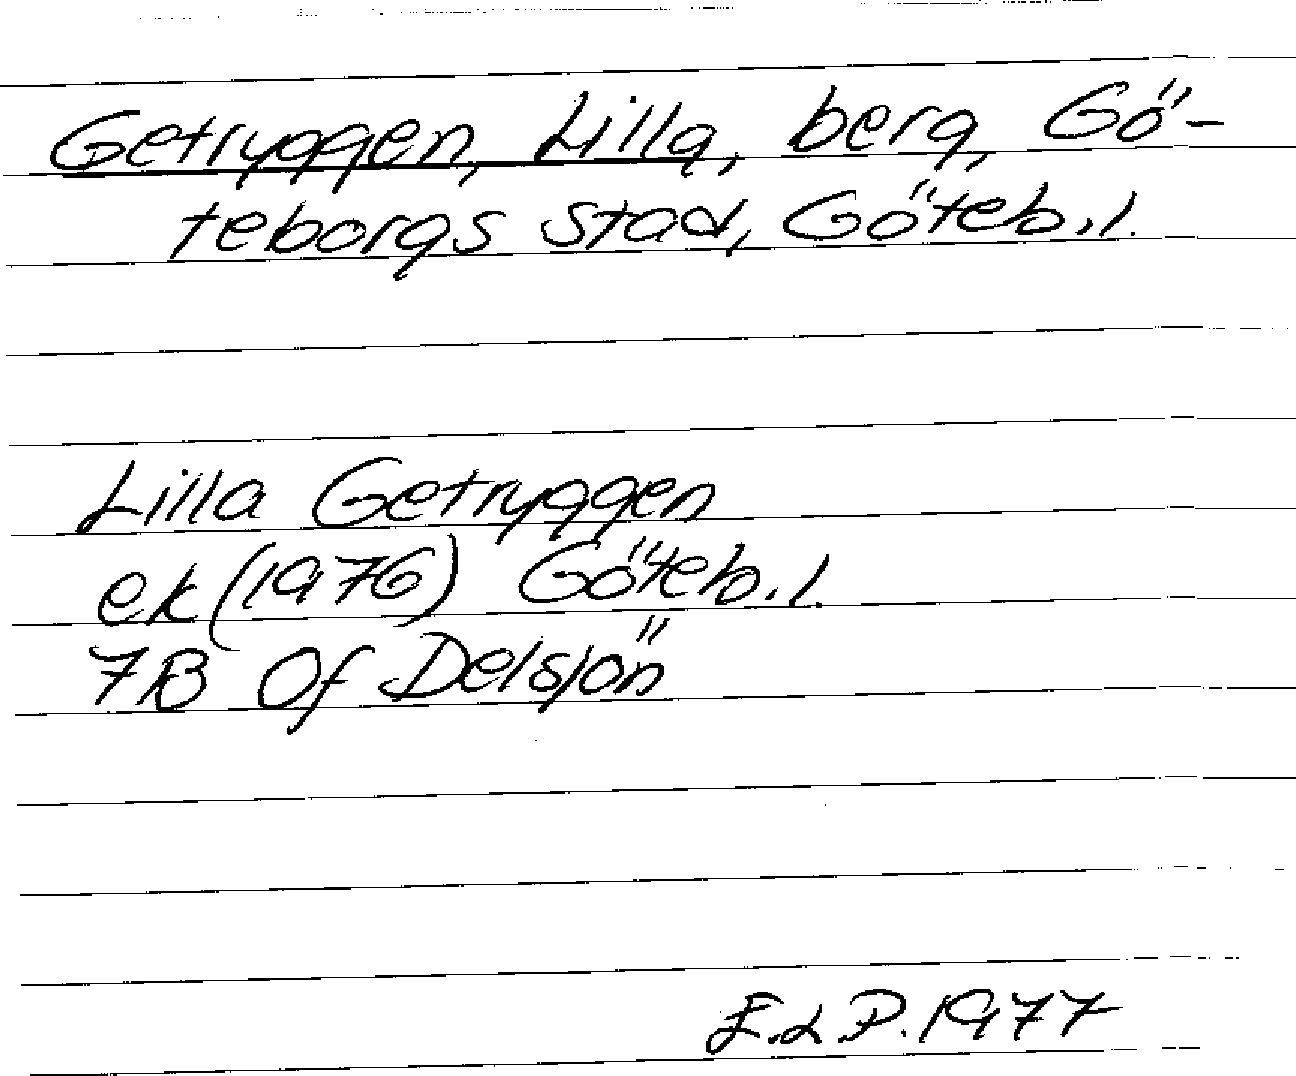 Getryggen, Lilla, berg, Gö-
teborgs stad, Göteb.l.
Lilla Getryggen
ek (1976) Göteb.l.
7B Of Delsjön
E.L.P. 1977